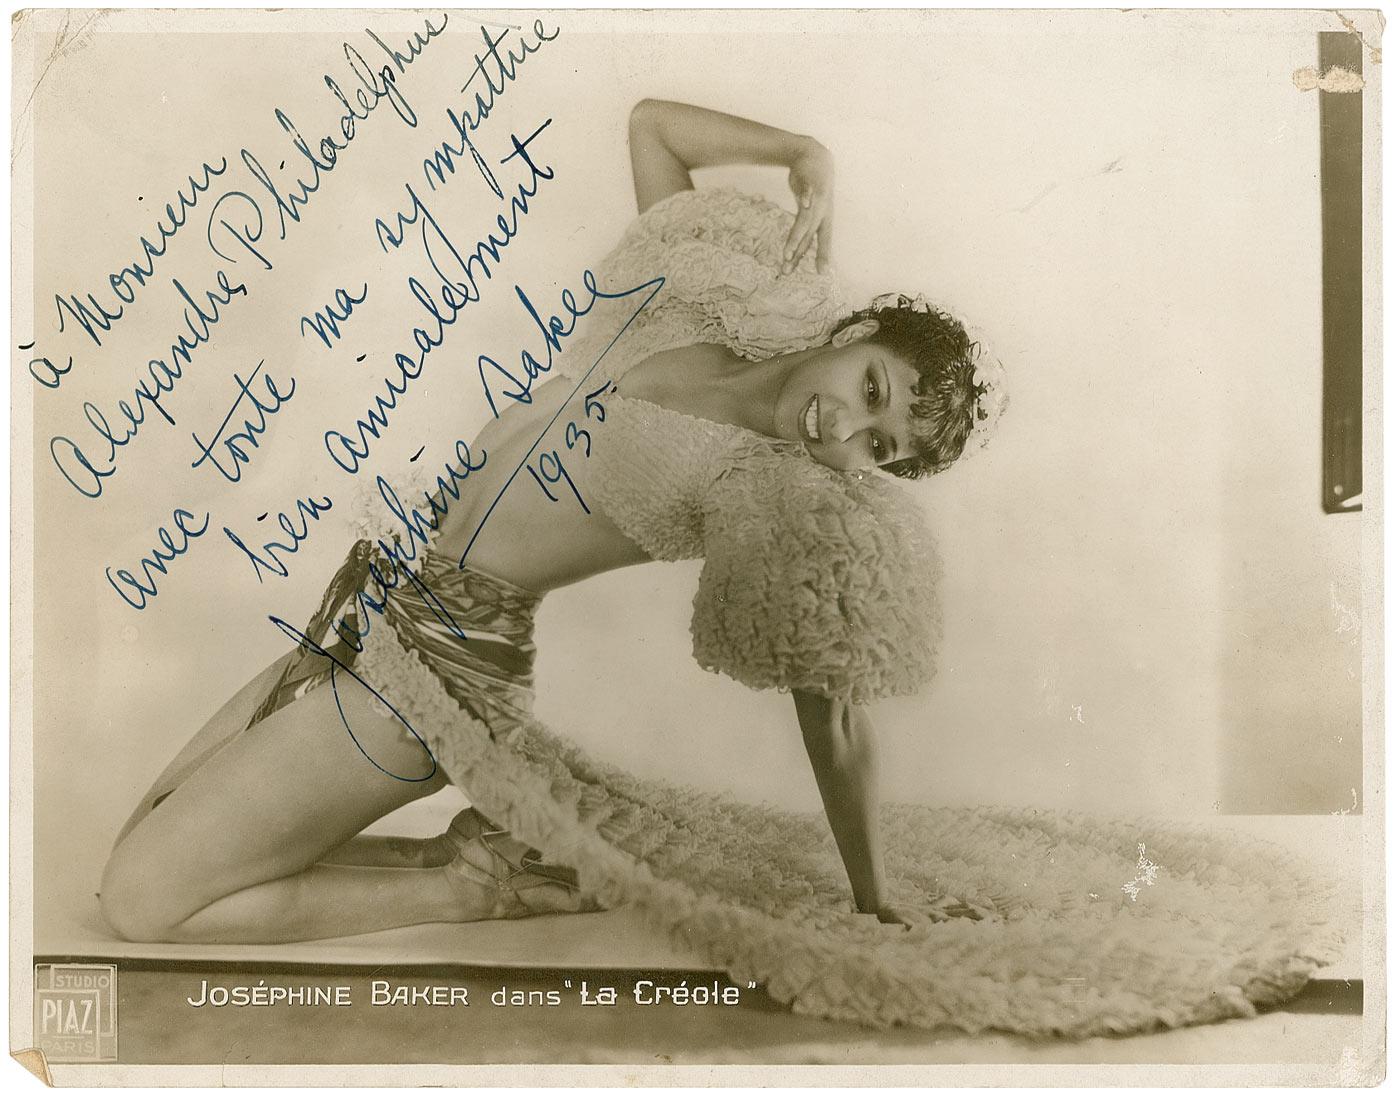 à Monsieur
Alexandre Philadelphus
avec toute ma sympathie
bien amicalement
Joséphine Baker
1935.
JOSÉPHINE BAKER dans "La Créole"
STUDIO
PIAZ
PARIS